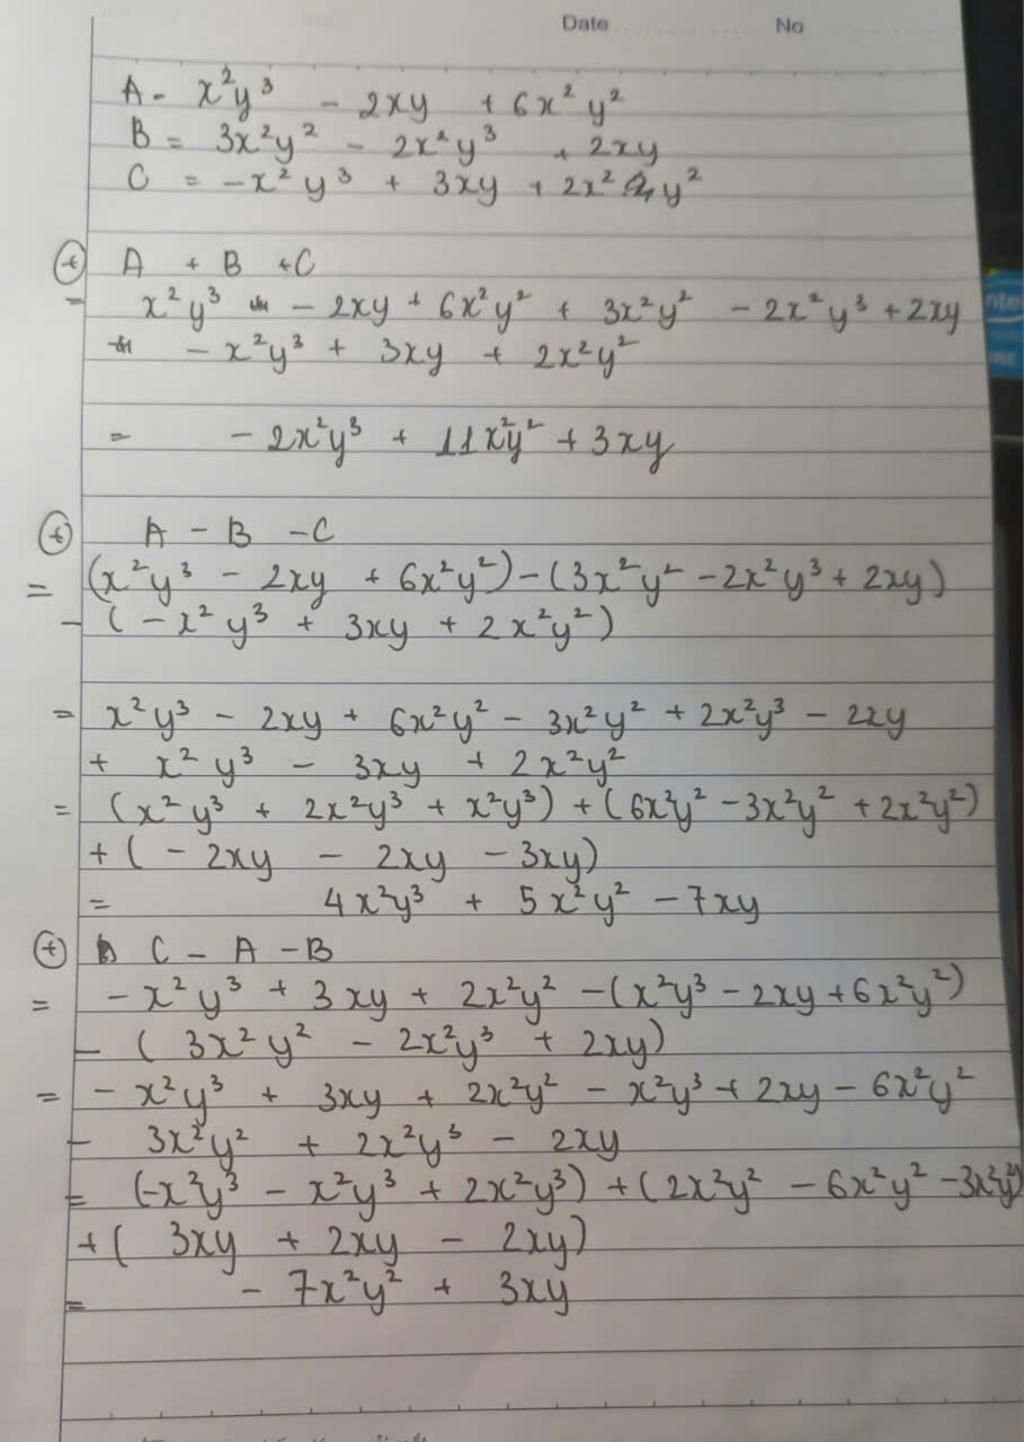 Date No
A - x²y³ - 2xy + 6x²y²
B = 3x²y² - 2x²y³ + 2xy
C = -x²y³ + 3xy + 2x²y²
(+) A + B + C
= x²y³ - 2xy + 6x²y² + 3x²y² - 2x²y³ + 2xy
- x²y³ + 3xy + 2x²y²
= - 2x²y³ + 11x²y² + 3xy
(+) A - B - C
= (x²y³ - 2xy + 6x²y²) - (3x²y² - 2x²y³ + 2xy)
- (-x²y³ + 3xy + 2x²y²)
= x²y³ - 2xy + 6x²y² - 3x²y² + 2x²y³ - 2xy
+ x²y³ - 3xy + 2x²y²
= (x²y³ + 2x²y³ + x²y³) + (6x²y² - 3x²y² + 2x²y²)
+ (- 2xy - 2xy - 3xy)
= 4x²y³ + 5x²y² - 7xy
(+) C - A - B
= - x²y³ + 3xy + 2x²y² - (x²y³ - 2xy + 6x²y²)
- (3x²y² - 2x²y³ + 2xy)
= - x²y³ + 3xy + 2x²y² - x²y³ + 2xy - 6x²y²
- 3x²y² + 2x²y³ - 2xy
= (-x²y³ - x²y³ + 2x²y³) + (2x²y² - 6x²y² - 3x²y²)
+ (3xy + 2xy - 2xy)
= - 7x²y² + 3xy